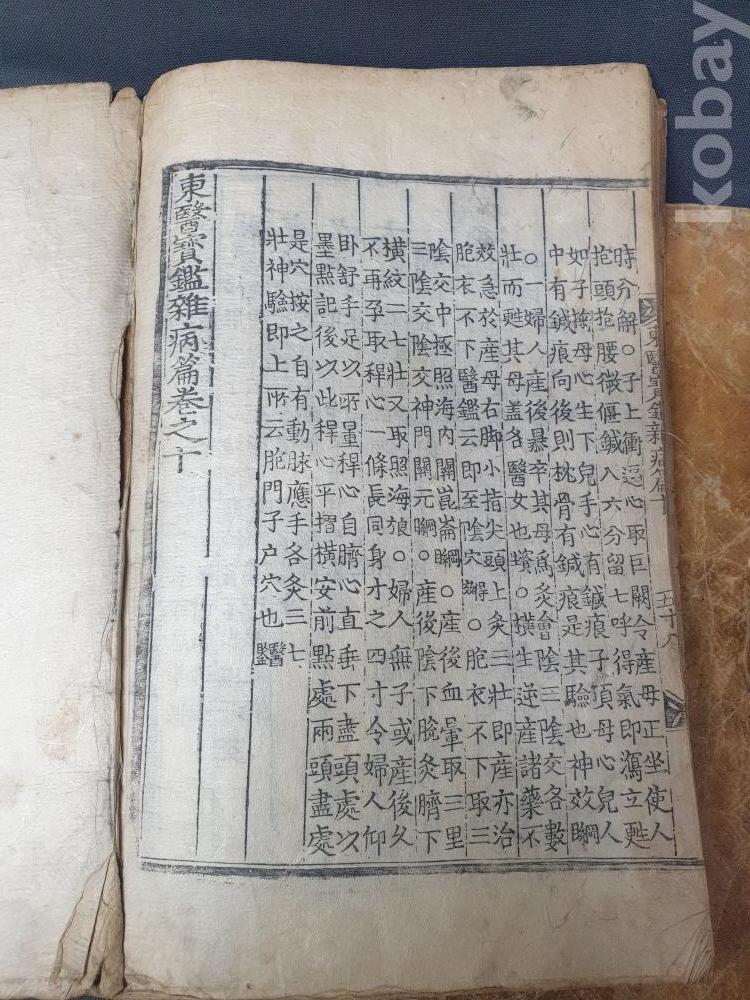 東醫寶鑑雜病篇十
五十八
時分解○子上衝逼心取巨闕令産母正坐使人
抱頭抱腰微偃鍼入六分留七呼得氣即瀉立甦
如子掬母心生下兒手心有鍼痕子頂母心兒人
中有鍼痕向後則枕骨有鍼痕是其驗也神效綱目
○一婦人産後暴卒其母爲灸會陰三陰交各數
壯而甦其母盖名醫女也○橫生逆産諸藥不
效急於産母右脚小指尖頭上灸三壯即産亦治
胞衣不下醫鑑云即至陰穴○胞衣不下取三
陰交中極照海內關崑崙綱目○産後血暈取三里
三陰交陰交神門關元綱目○産後陰下脫灸臍下
橫紋二七壯又取照海○婦人無子或産後久
不再孕取稈心一條長同身寸之四寸令婦人仰
卧舒手足以所量稈心自臍心直垂下盡頭處以
墨點記後以此稈心平摺橫安前點處兩頭盡處
是穴按之自有動脉應手各灸三七
壯神驗即上所云胞門子户穴也醫鑑
東醫寶鑑雜病篇卷之十
kobay